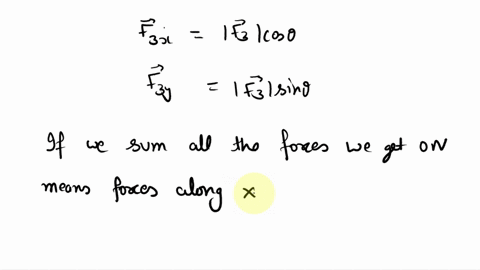 F⃗₃ₓ = |F⃗₃|cosθ
F⃗₃ᵧ = |F⃗₃|sinθ
If we sum all the forces we get 0N
means forces along x